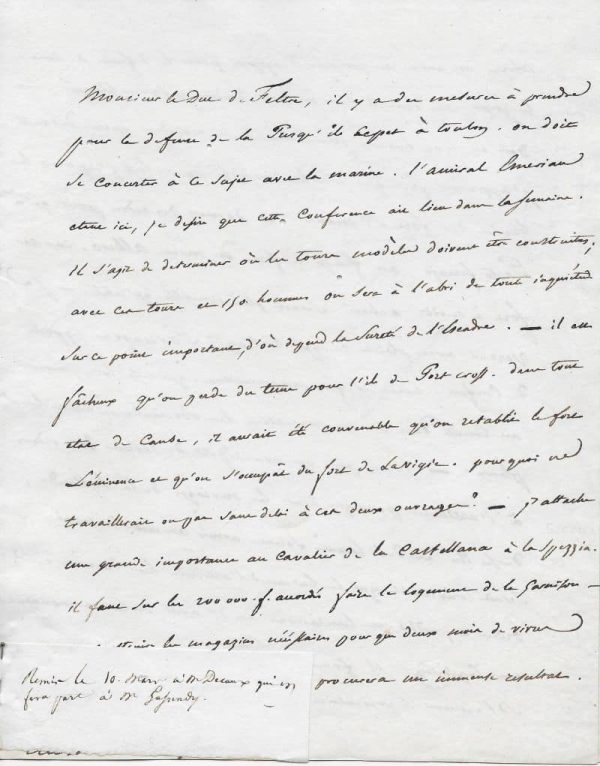 Monsieur le Duc de Feltre, il y a des mesures à prendre
pour la defense de la Presqu'ile Cepet à toulon. on doit
se concerter à ce sujet avec la marine. l'amiral Emeriau
étant ici, je desire que cette Conference ait lieu dans la semaine.
Il s'agit de determiner où les tours modèles doivent être construites;
avec ces tours et 150 hommes on sera à l'abri de toute inquiétude
sur ce point important, d'où depend la Sureté de l'Escadre. — il est
fâcheux qu'on perde du tems pour l'ile de Port cross. dans tout
etat de Cause, il aurait été convenable qu'on retablit le fort
l'éminence et qu'on s'occupât du fort de la vigie. pourquoi ne
travaillerait on pas sans delai à ces deux ouvrages? — j'attache
une grande importance au Cavalier de la Castellana à la Spezzia.
il faut sur les 200 000. f. accordés faire le logement de la Garnison —
les magasins nécessaires pour que deux mois de vivres
procurera un immense resultat.
Remise le 10. Mars à Mr Decaux qui en
fera part à Mr Gassendy.